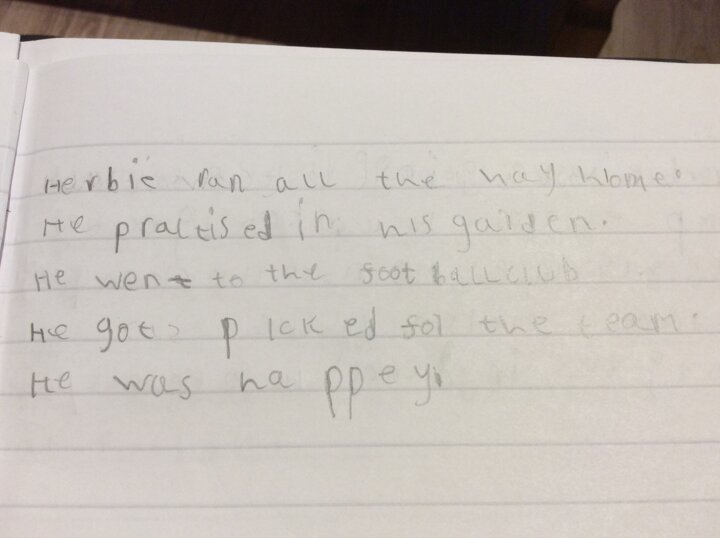 Herbie ran all the way home.
He practised in his garden.
He went to the foot ball club
He got picked for the team.
He was happey.